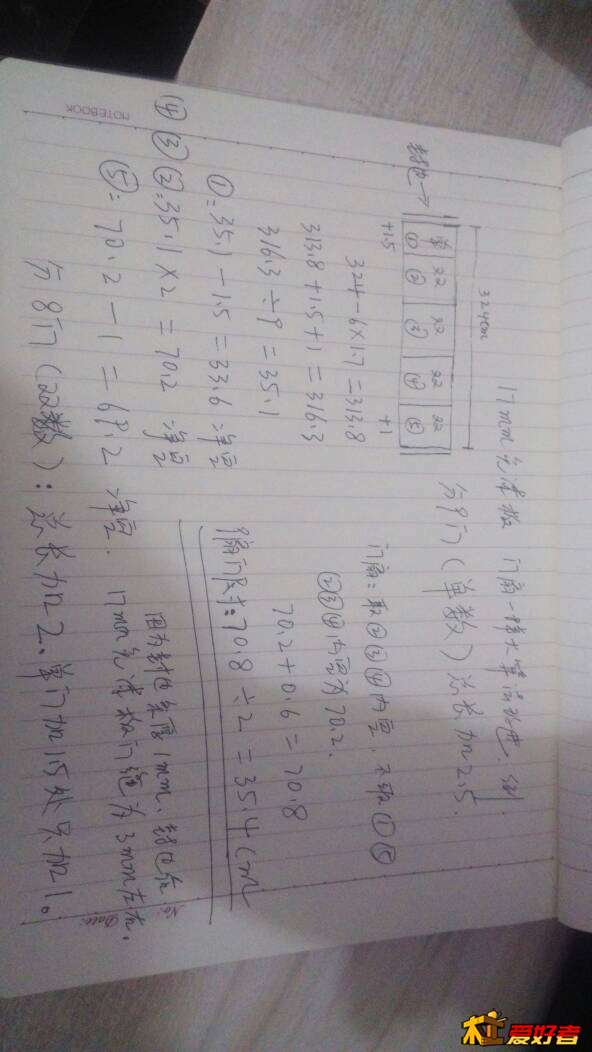 17mm 免漆板 门扇一样大 算法
分9门（单数）总长加2.5.
324cm
铝包→
单 22 22 22 22
① ② ③ ④ ⑤
+1.5 +1
324-6×1.7=313.8
313.8+1.5+1=316.3
316.3÷9=35.1
①=35.1-1.5=33.6 净空
④③②=35.1×2=70.2 净空
⑤=70.2-1=69.2 净空.
门扇=取②③④内空.不取①⑤
②③④内空为70.2.
70.2+0.6=70.8
扇门尺寸:70.8÷2=35.4cm
因为封边 厚度1mm.
17mm免漆板门缝为3mm左右.
分8门（双数）：总长加2.单门加1.5 双门加1。
No.
Date.
NOTEBOOK
木工爱好者